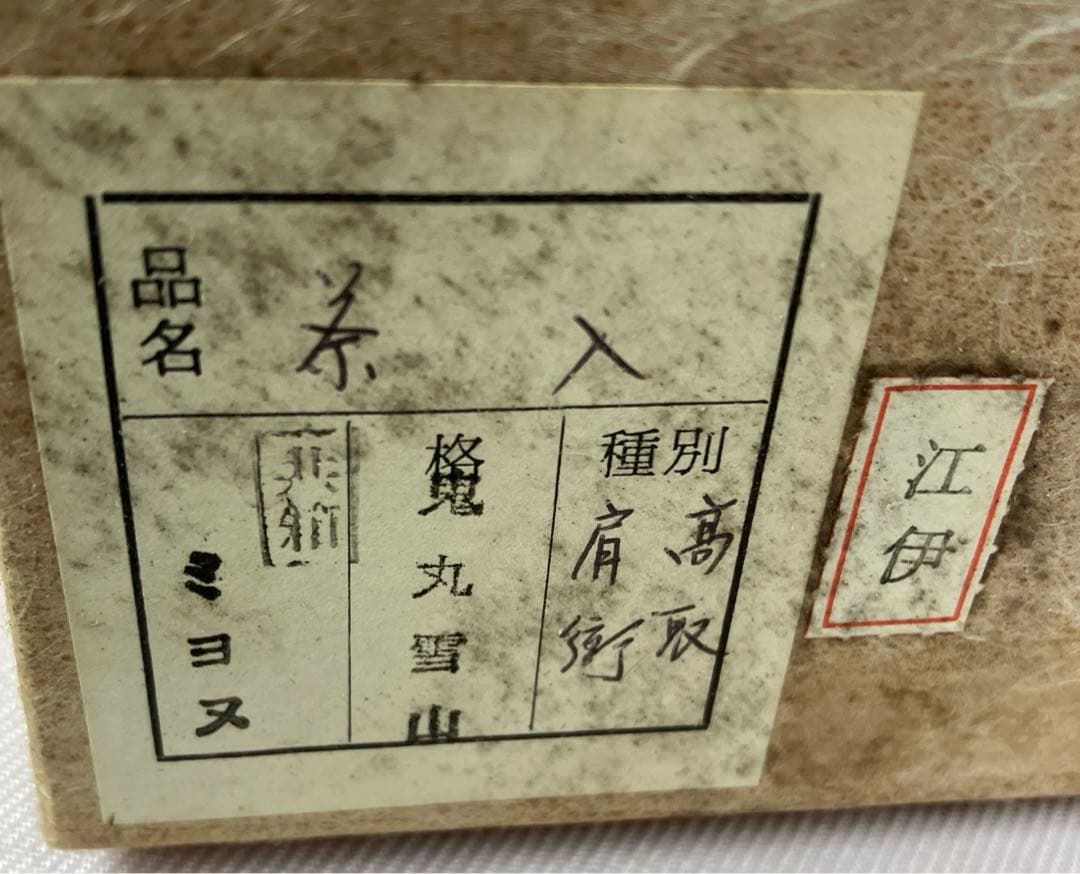 品名
茶入
種別
高取
肩衝
格
鬼丸雪山
共箱
ミヨヌ
江伊